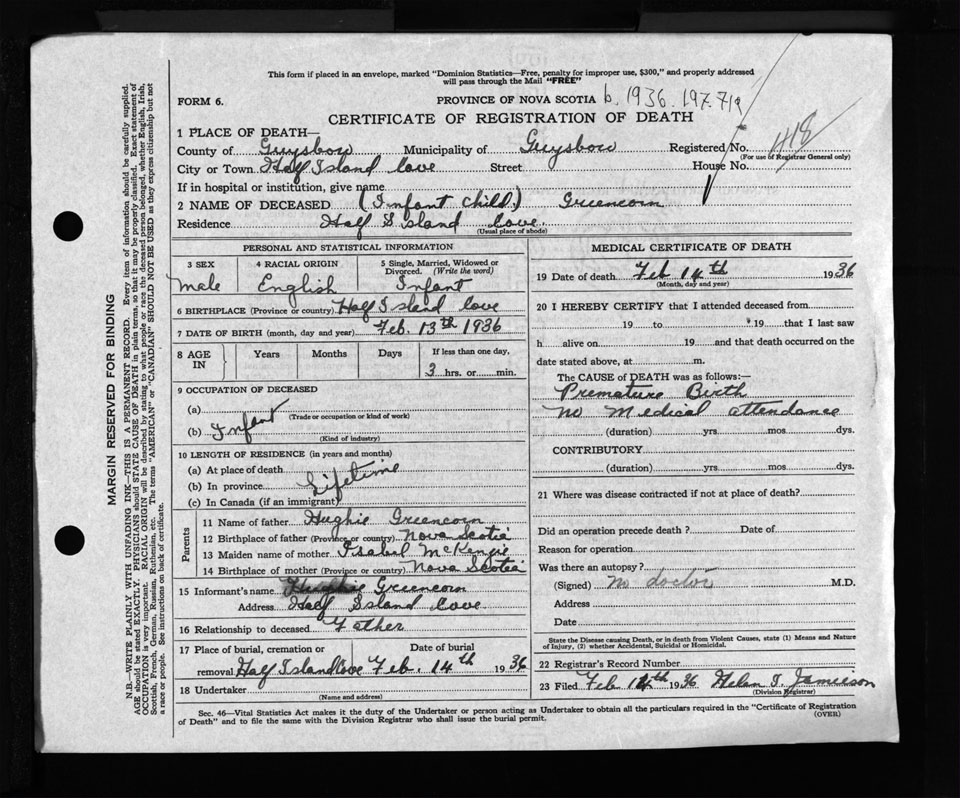 This form if placed in an envelope, marked "Dominion Statistics—Free, penalty for improper use, $300," and properly addressed
will pass through the Mail "FREE"
FORM 6.
PROVINCE OF NOVA SCOTIA b. 1936. 197. 719
CERTIFICATE OF REGISTRATION OF DEATH
1 PLACE OF DEATH—
County of Guysboro Municipality of Guysboro Registered No. 118
(For use of Registrar General only)
City or Town Half Island Cove Street House No.
If in hospital or institution, give name
2 NAME OF DECEASED (Infant Child) Greencorn
Residence Half Island Cove
(Usual place of abode)
PERSONAL AND STATISTICAL INFORMATION
3 SEX 4 RACIAL ORIGIN 5 Single, Married, Widowed or
Divorced. (Write the word)
Male English Infant
6 BIRTHPLACE (Province or country) Half Island Cove
7 DATE OF BIRTH (month, day and year) Feb. 13th 1936
8 AGE IN Years Months Days If less than one day,
3 hrs. or min.
9 OCCUPATION OF DECEASED
(a)
(Trade or occupation or kind of work)
(b) Infant
(Kind of industry)
10 LENGTH OF RESIDENCE (in years and months)
(a) At place of death
(b) In province Lifetime
(c) In Canada (if an immigrant)
Parents
11 Name of father Hughie Greencorn
12 Birthplace of father (Province or country) Nova Scotia
13 Maiden name of mother Isabel McKenzie
14 Birthplace of mother (Province or country) Nova Scotia
15 Informant's name Hughie Greencorn
Address Half Island Cove
16 Relationship to deceased Father
17 Place of burial, cremation or Date of burial
removal Half Island Cove Feb. 14th 1936
18 Undertaker
(Name and address)
MEDICAL CERTIFICATE OF DEATH
19 Date of death Feb 14th 1936
(Month, day and year)
20 I HEREBY CERTIFY that I attended deceased from
19 to 19 that I last saw
h alive on 19 and that death occurred on the
date stated above, at m.
The CAUSE of DEATH was as follows:—
Premature Birth
No Medical attendance
(duration) yrs mos dys.
CONTRIBUTORY
(duration) yrs mos dys.
21 Where was disease contracted if not at place of death?
Did an operation precede death? Date of
Reason for operation
Was there an autopsy?
(Signed) No doctor M.D.
Address
Date
State the Disease causing Death, or in death from Violent Causes, state (1) Means and Nature
of Injury, (2) whether Accidental, Suicidal or Homicidal.
22 Registrar's Record Number
23 Filed Feb 14th 1936 Helen T. Jamieson
(Division Registrar)
Sec. 46—Vital Statistics Act makes it the duty of the Undertaker or person acting as Undertaker to obtain all the particulars required in the "Certificate of Registration
of Death" and to file the same with the Division Registrar who shall issue the burial permit. (OVER)
MARGIN RESERVED FOR BINDING
N.B.—WRITE PLAINLY WITH UNFADING INK—THIS IS A PERMANENT RECORD. Every item of information should be carefully supplied.
AGE should be stated EXACTLY. PHYSICIANS should STATE CAUSE OF DEATH in plain terms, so that it may be properly classified. Exact statement of
OCCUPATION is very important. RACIAL ORIGIN will be described by stating to what people or race the deceased person belonged, whether English, Irish,
Scottish, French, German, Russian, Ruthenian, etc. The terms "AMERICAN" or "CANADIAN" SHOULD NOT BE USED as they express citizenship but not
a race or people. See instructions on back of certificate.